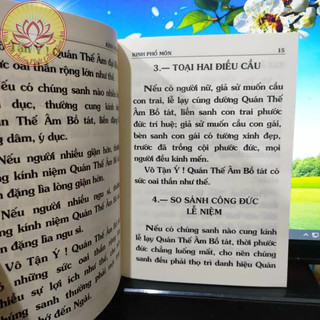 Tấn Ý
KINH
Quán Thế Âm
oai thần rộng lớn như thế.
có chúng sanh nào nhiều
dục, thường cung kính
Thế Âm Bồ tát, bèn
dâm, ý dục.
người nhiều giận hờn,
kính niệm Quán Thế Âm Bồ
đặng lìa lòng giận hờn.
người nhiều ngu si,
kính niệm Quán Thế Âm
đặng lìa ngu si.
Vô Tận Ý! Quán Thế Âm
những sức oai thần
sự lợi ích như thế,
chúng sanh thường phải
nhớ đến Ngài.
KINH PHỔ MÔN 15
3.— TOẠI HAI ĐIỀU CẦU
Nếu có người nữ, giả sử muốn cầu
con trai, lễ lạy cúng dường Quán Thế
Âm Bồ tát, liền sanh con trai phước
đức trí huệ; giả sử muốn cầu con gái,
bèn sanh con gái có tướng xinh đẹp,
trước đã trồng cội phước đức, mọi
người đều kính mến.
Vô Tận Ý! Quán Thế Âm Bồ tát có
sức oai thần như thế.
4.— SO SÁNH CÔNG ĐỨC
LỄ NIỆM
Nếu có chúng sanh nào cung kính
lễ lạy Quán Thế Âm Bồ tát, thời phước
đức chẳng luống mất, cho nên chúng
sanh đều phải thọ trì danh hiệu Quán